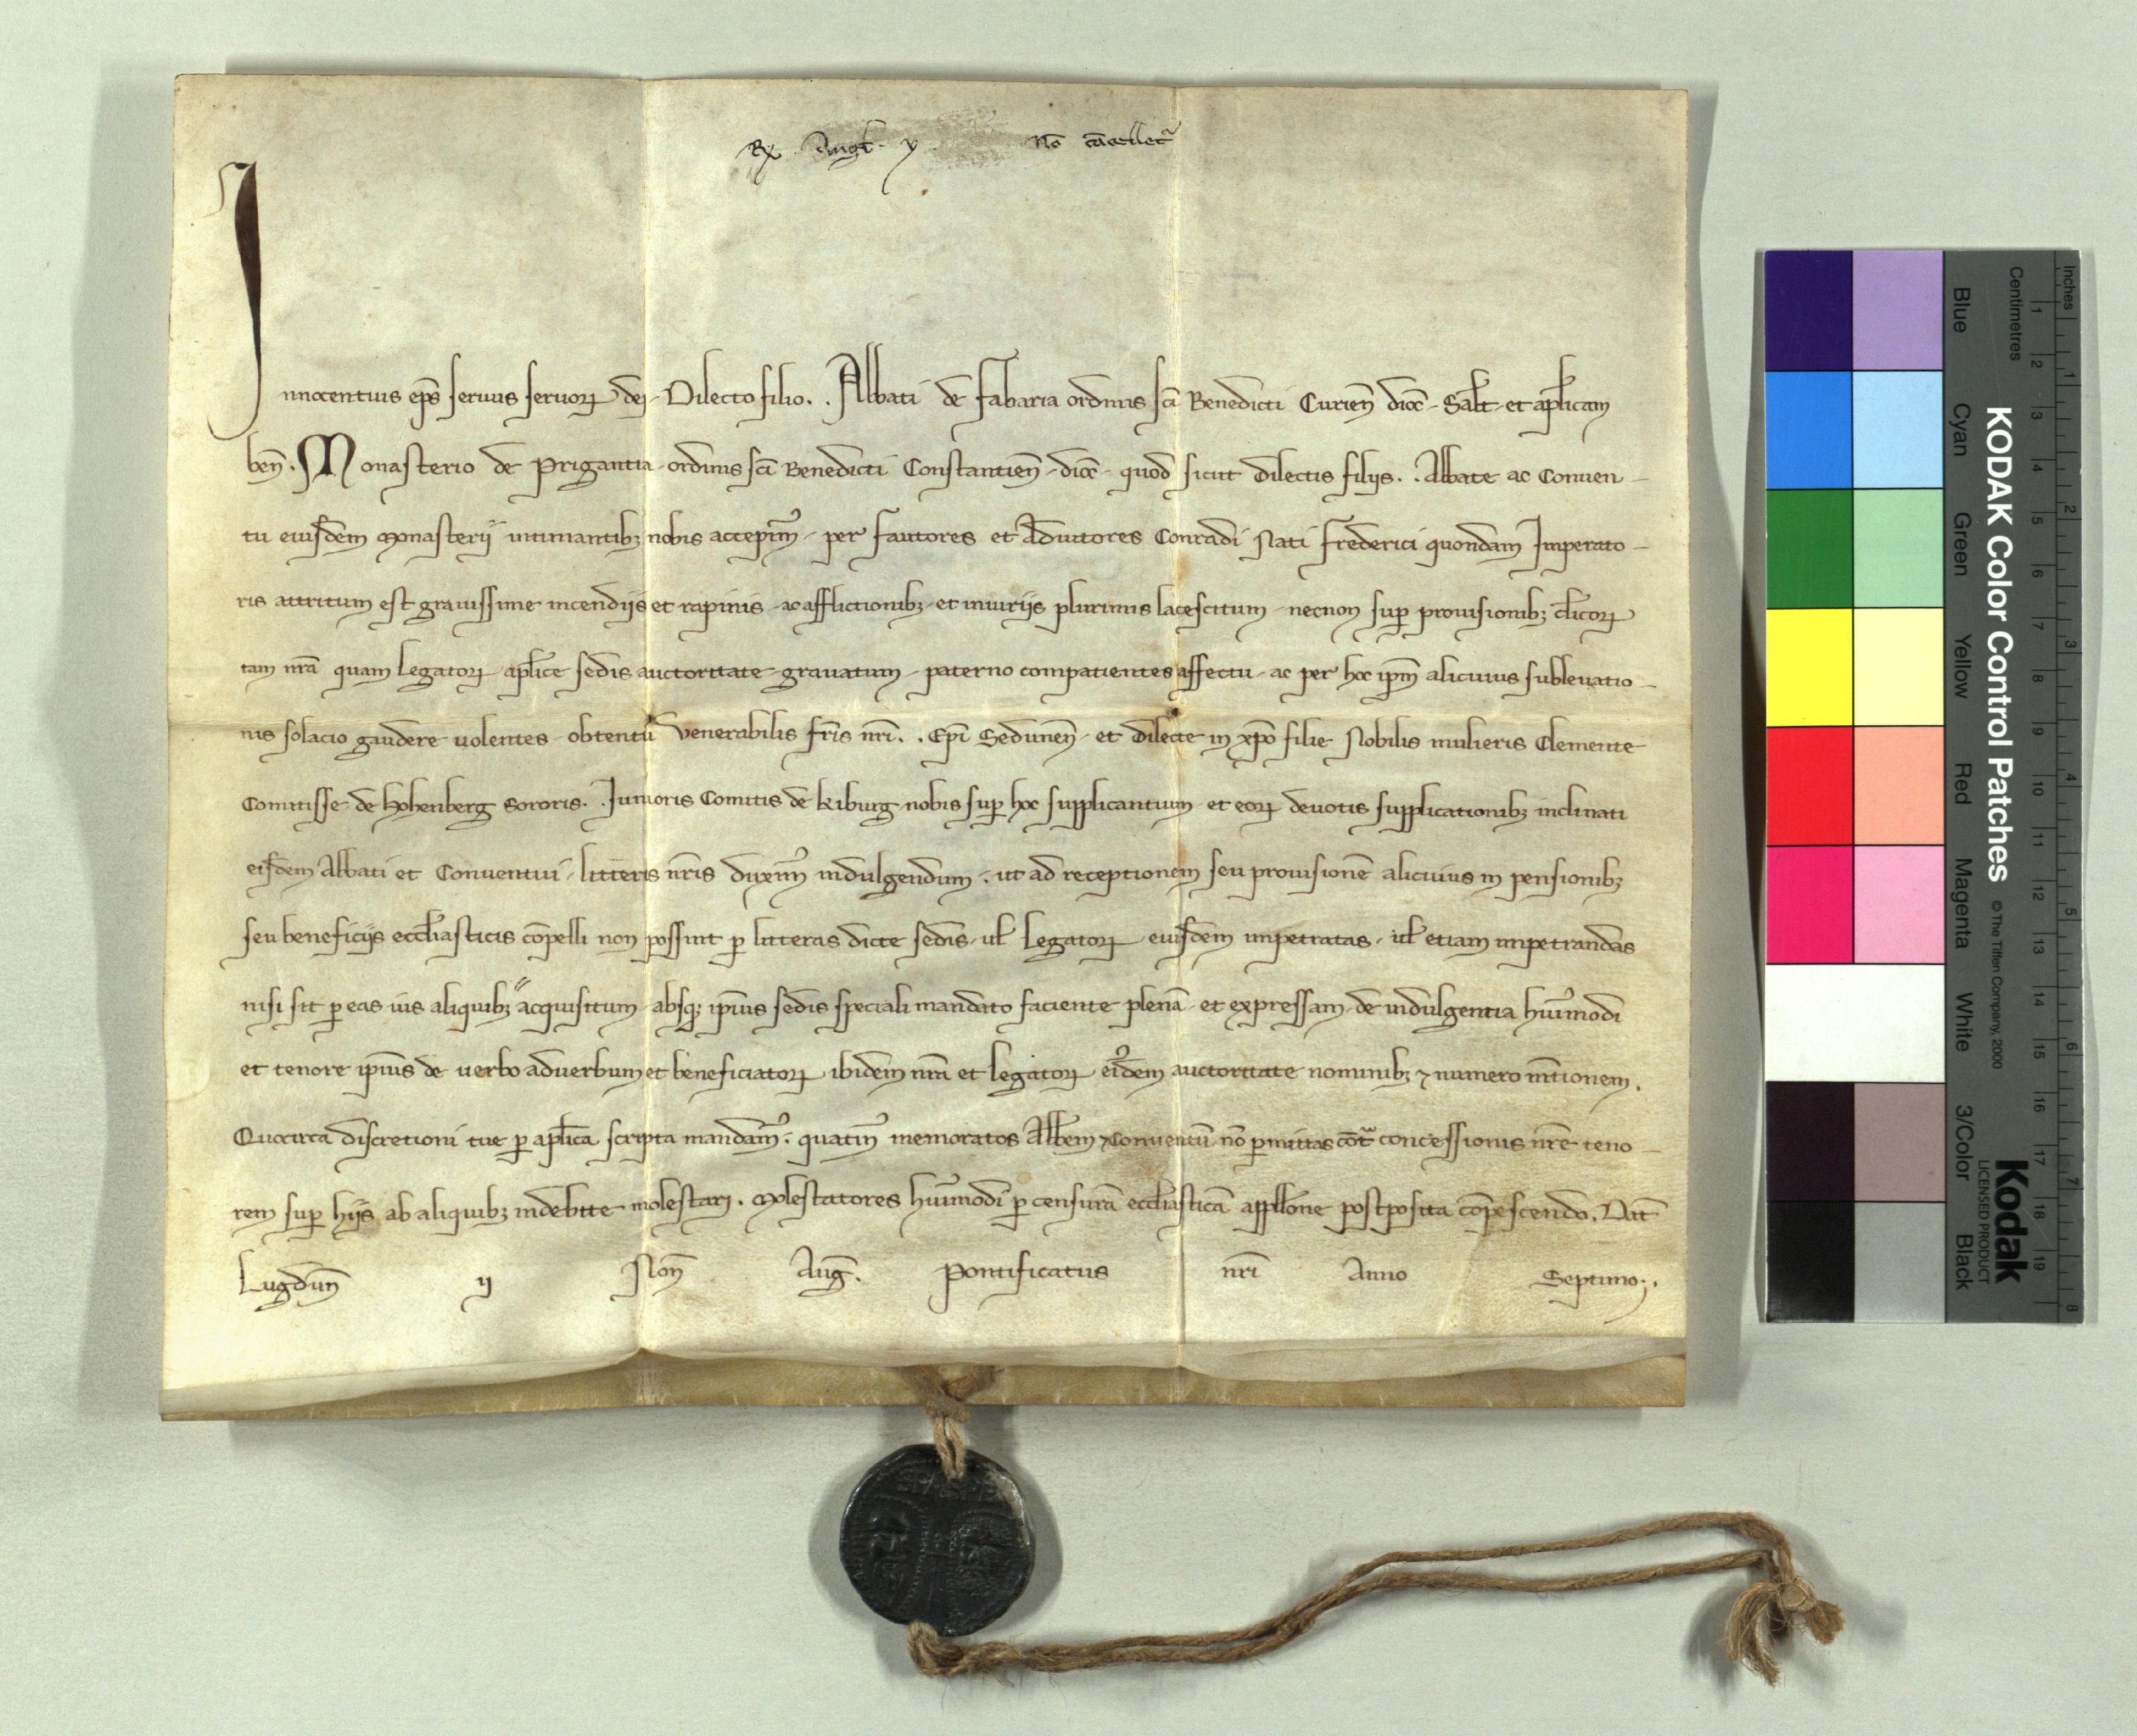 Rx Augt. y nō cācellet᷑
Innocentius ep̄s seruus seruoꝝ dei. Dilecto filio.. Abbati de fabaria ordinis sc̄i Benedicti Curien̄ dioc̄. Salt̄ et aplicam
ben̄. Monasterio de Prigantia ordinis sc̄i Benedicti Constantien̄ dioc̄. quod sicut dilectis filijs.. Abbate ac Conuen-
tu eiusdem Monasterij intimantibꝫ nobis accepimꝰ. per fautores et Adiutores Conradi Nati Frederici quondam Imperato-
ris attritum est grauissime incendijs et rapinis. ac afflictionibꝫ. et iniurijs plurimis lacescitum. necnon suꝑ prouisionibꝫ clicoꝝ
tam nr̄a quam Legatoꝝ aplice sedis auctoritate grauatum. paterno compatientes affectu. ac per hoc ip̄m alicuius subleuatio-
nis solacio gaudere uolentes. obtentu Venerabilis fr̄is nr̄i.. Ep̄i Sedunen̄. et dilecte in xp̄o filie Nobilis mulieris Clemente
Comitisse de Hohenberg sororis.. Iunioris Comitis de Kiburg nobis suꝑ hoc supplicantium. et eoꝝ deuotis supplicationibꝫ inclinati
eisdem Abbati et Conuentui. litteris nr̄is duximꝰ indulgendum. ut ad receptionem seu prouisionē alicuius in pensionibꝫ
seu beneficijs eccl̄iasticis cōpelli non possint ꝑ litteras dicte sedis. ul̄ Legatoꝝ eiusdem impetratas. ul̄ etiam impetrandas
nisi sit ꝑ eas ius aliquibꝫ acquisitum. absqꝫ ip̄ius sedis speciali mandato faciente plenā. et expressam. de indulgentia huiꝰmodi
et tenore ip̄ius de uerbo aduerbum et beneficiatoꝝ ibidem nr̄a et legatoꝝ eiꝰdem auctoritate nominibꝫ ⁊ numero mēt̄ionem.
Quocirca discretioni tue ꝑ apl̄ica scripta mandamꝰ. quatinꝰ memoratos Abb̄em ⁊ Conuentū nō ꝑmittas cōt᷑ concessionis nr̄e teno-
rem suꝑ hijs ab aliquibꝫ indebite molestari. Molestatores huiꝰmodi ꝑ censurā eccl̄iasticā appl̄one postposita cōpescendo. Dat̄
Lugdun̄ ij Non̄ Auḡ. Pontificatus nr̄i Anno Septimo..
KODAK Color Control Patches © The Tiffen Company, 2000 Kodak
LICENSED PRODUCT
Blue Cyan Green Yellow Red Magenta White 3/Color Black
Centimetres 1 2 3 4 5 6 7 8 9 10 11 12 13 14 15 16 17 18 19
Inches 1 2 3 4 5 6 7 8